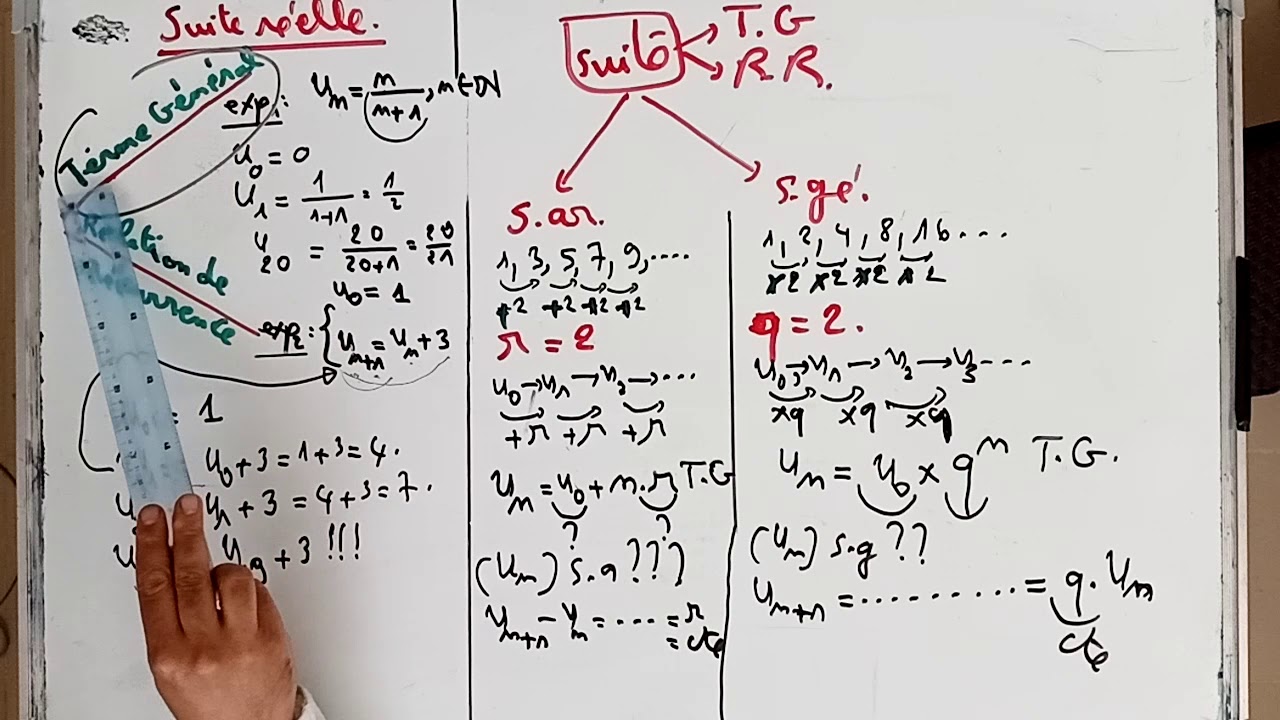 Suite réelle.
Terme Général
exp1: Un = n/(n+1), n∈IN
U0 = 0
U1 = 1/(1+1) = 1/2
U20 = 20/(20+1) = 20/21
Relation de
exp2: { U0 = 1
Un+1 = Un + 3
= 1
U0 + 3 = 1 + 3 = 4.
U1 + 3 = 4 + 3 = 7.
+ 3 !!!
Suite
T.G
R.R.
S.ar.
1, 3, 5, 7, 9, ....
+2 +2 +2 +2
r = 2
U0 → U1 → U2 → ...
+r +r +r
Un = U0 + n.r T.G
? ?
(Un) s.a ???
Un+1 - Un = .... = r
= cte
S.gé.
1, 2, 4, 8, 16 ...
×2 ×2 ×2 ×2
q = 2.
U0 → U1 → U2 → U3 ...
×q ×q ×q
Un = U0 × q^n T.G.
(Un) s.g ??
Un+1 = .......... = q. Un
cte